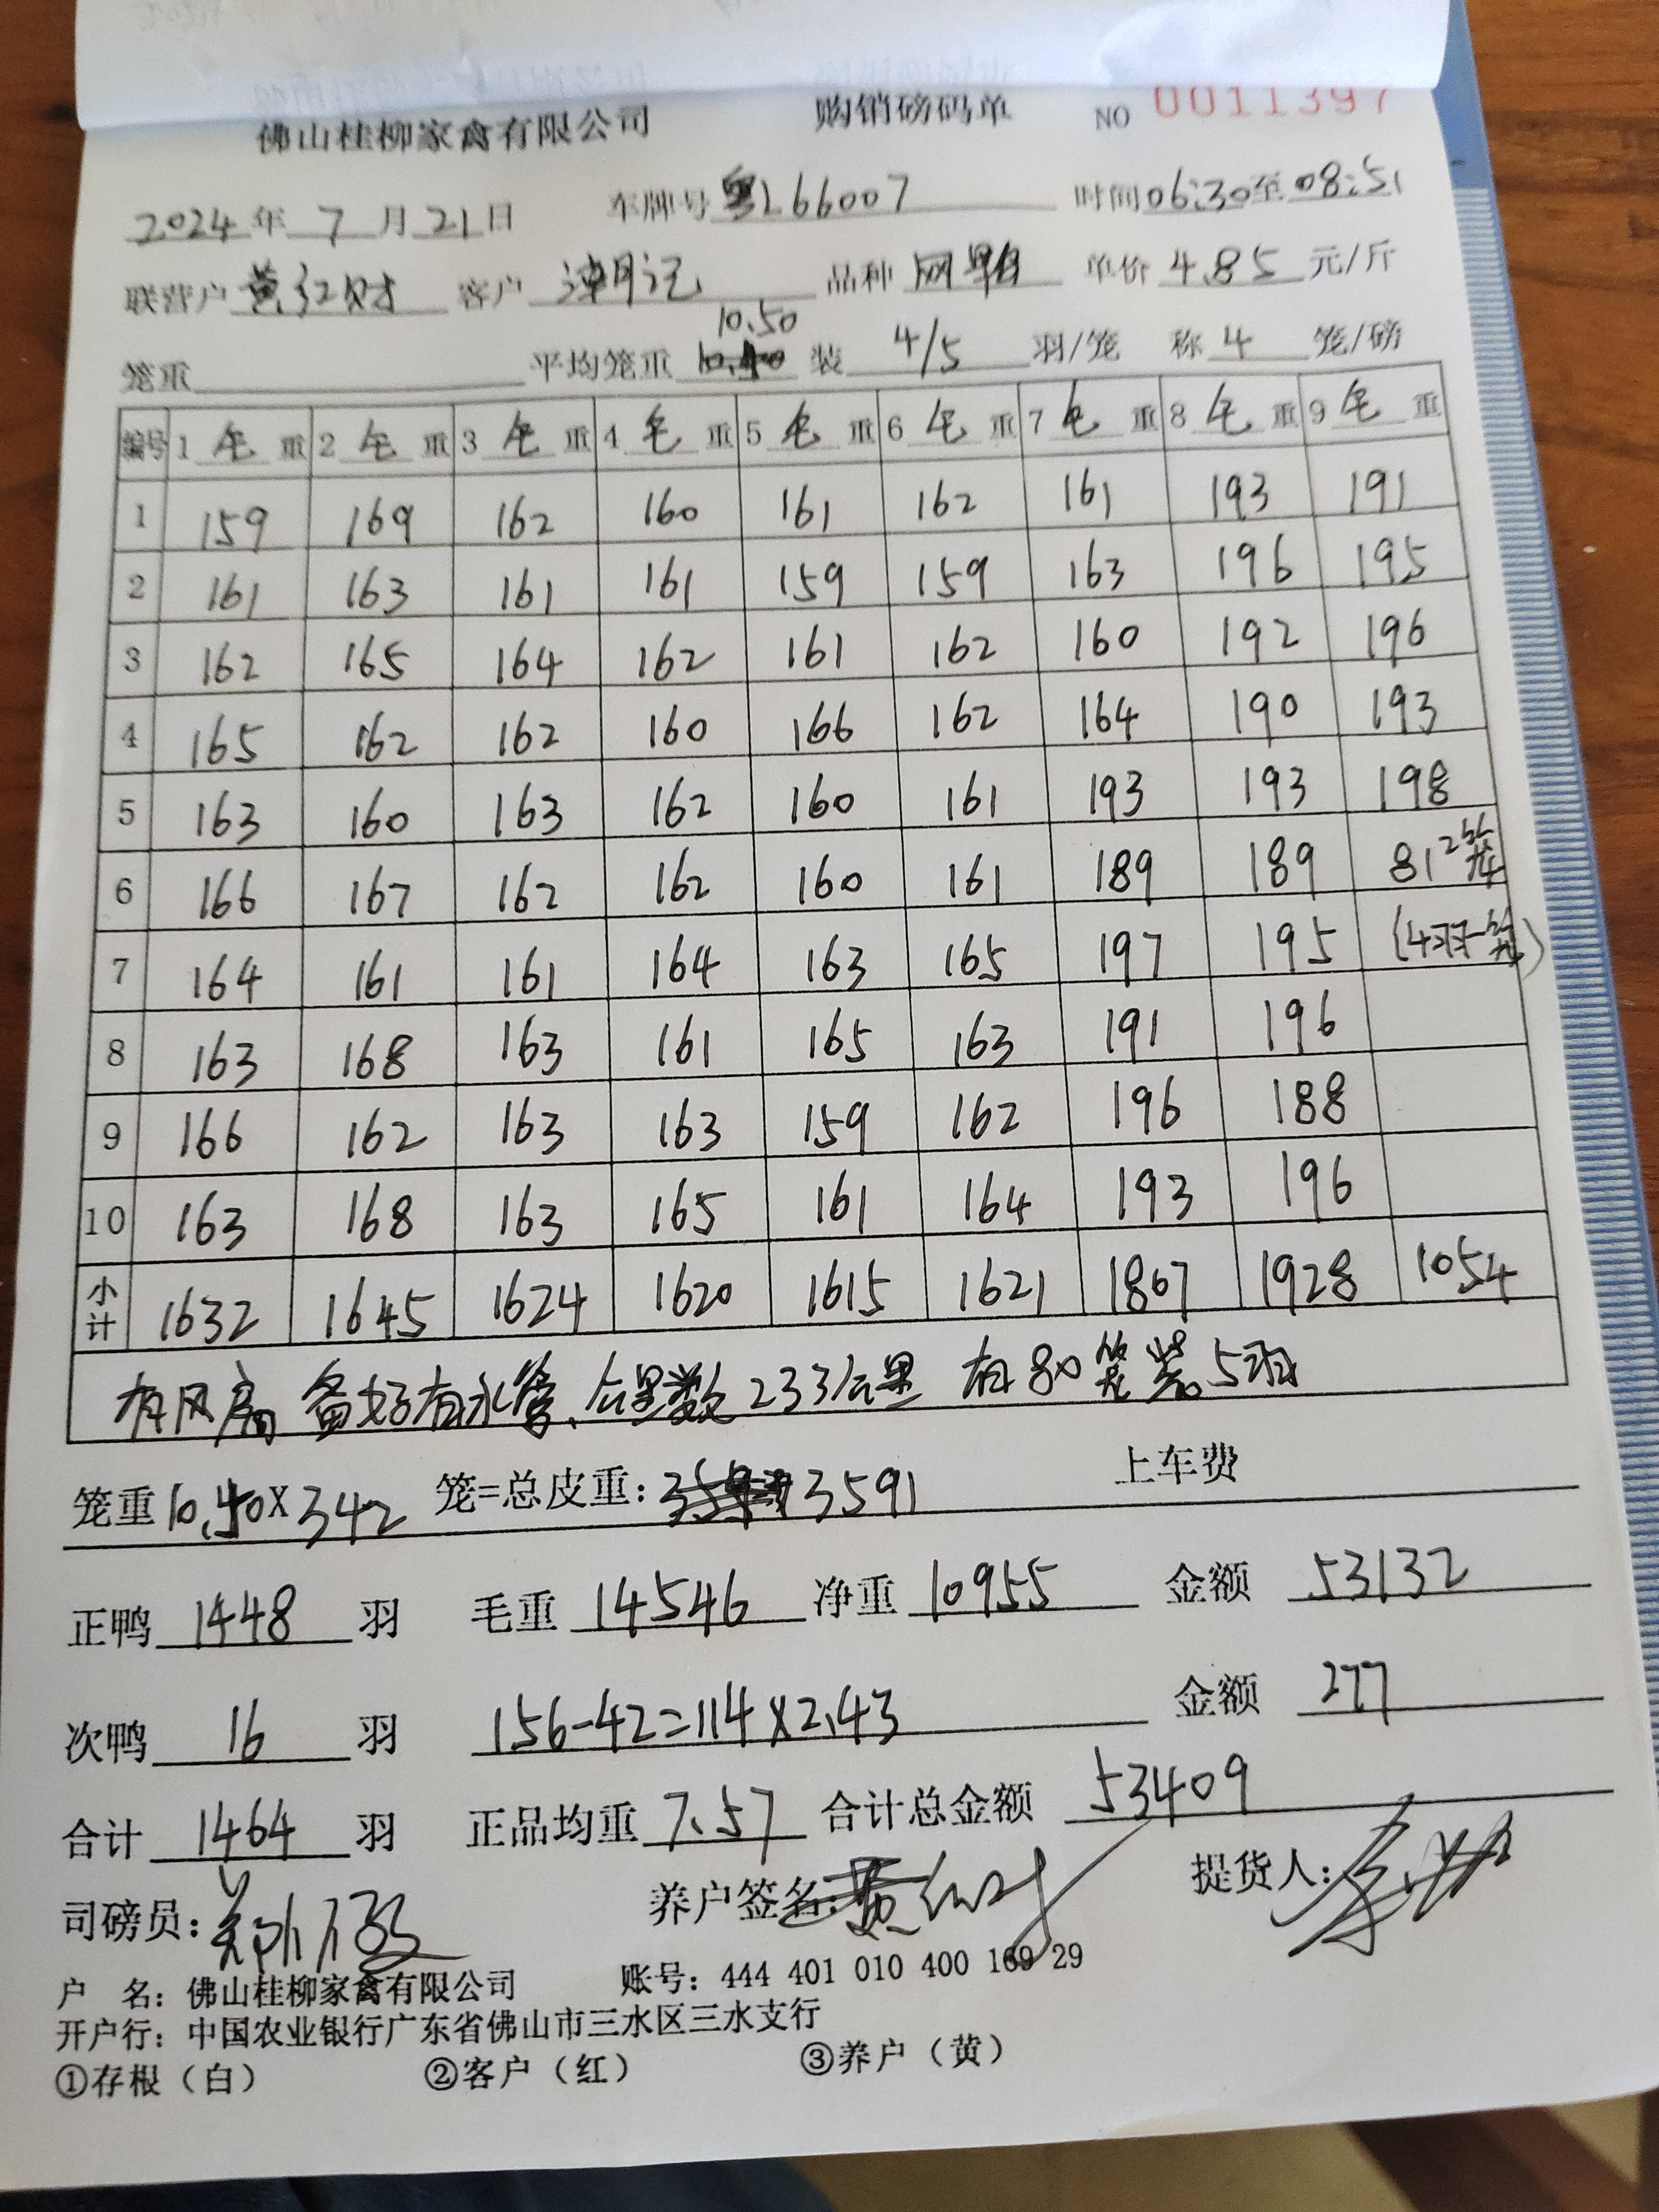 佛山桂柳家禽有限公司 购销磅码单 NO 0011397
2024年7月21日 车牌号 粤L66007 时间06:30至08:51
联营户 黄红财 客户 记 品种 网 单价 4.85 元/斤
笼重 平均笼重 10.50 装 4/5 羽/笼 称 4 笼/磅
编号 1毛重 2毛重 3毛重 4毛重 5毛重 6毛重 7毛重 8毛重 9毛重
1 159 169 162 160 161 162 161 193 191
2 161 163 161 161 159 159 163 196 195
3 162 165 164 162 161 162 160 192 196
4 165 162 162 160 166 162 164 190 193
5 163 160 163 162 160 161 193 193 198
6 166 167 162 162 160 161 189 189 81 2笼
7 164 161 161 164 163 165 197 195 (4羽一笼)
8 163 168 163 161 165 163 191 196
9 166 162 163 163 159 162 196 188
10 163 168 163 165 161 164 193 196
小计 1632 1645 1624 1620 1615 1621 1807 1928 1054
有风扇 备好有水管、公里数233公里 有80笼装5羽
笼重10.50X342 笼=总皮重: 3591 上车费
正鸭 1448 羽 毛重 14546 净重 10955 金额 53132
次鸭 16 羽 156-42=114X2.43 金额 277
合计 1464 羽 正品均重 7.57 合计总金额 53409
司磅员: 养户签名: 黄红财 提货人:
户 名: 佛山桂柳家禽有限公司 账号: 444 401 010 400 169 29
开户行: 中国农业银行广东省佛山市三水区三水支行
①存根（白） ②客户（红） ③养户（黄）